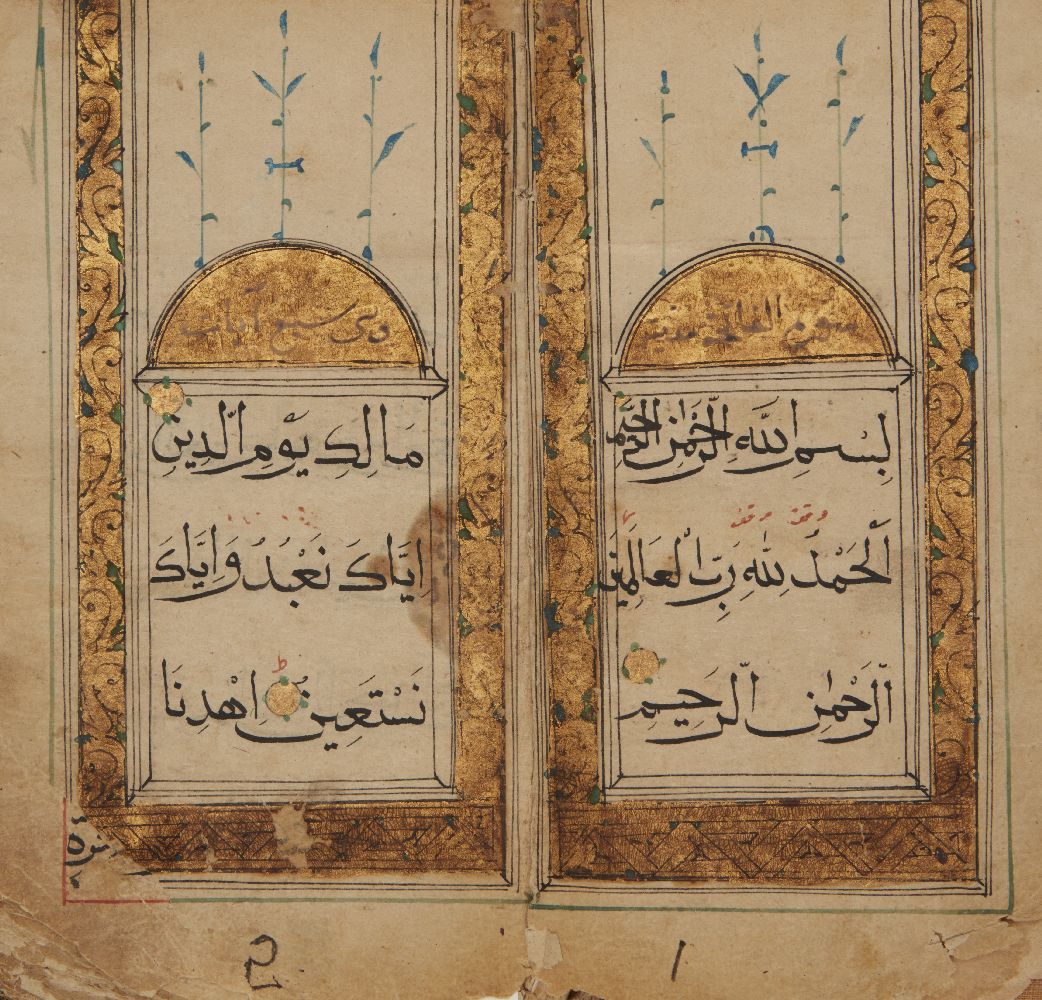 سورة الفاتحة مدنية
بِسْمِ اللَّهِ الرَّحْمَٰنِ الرَّحِيمِ
اَلْحَمْدُ لِلَّهِ رَبِّ الْعَالَمِينَ
اَلرَّحْمَٰنِ الرَّحِيمِ
1
وهي سبع آيات
مَالِكِ يَوْمِ الدِّينِ
اِيَّاكَ نَعْبُدُ وَاِيَّاكَ
نَسْتَعِينُ اِهْدِنَا
ط
2